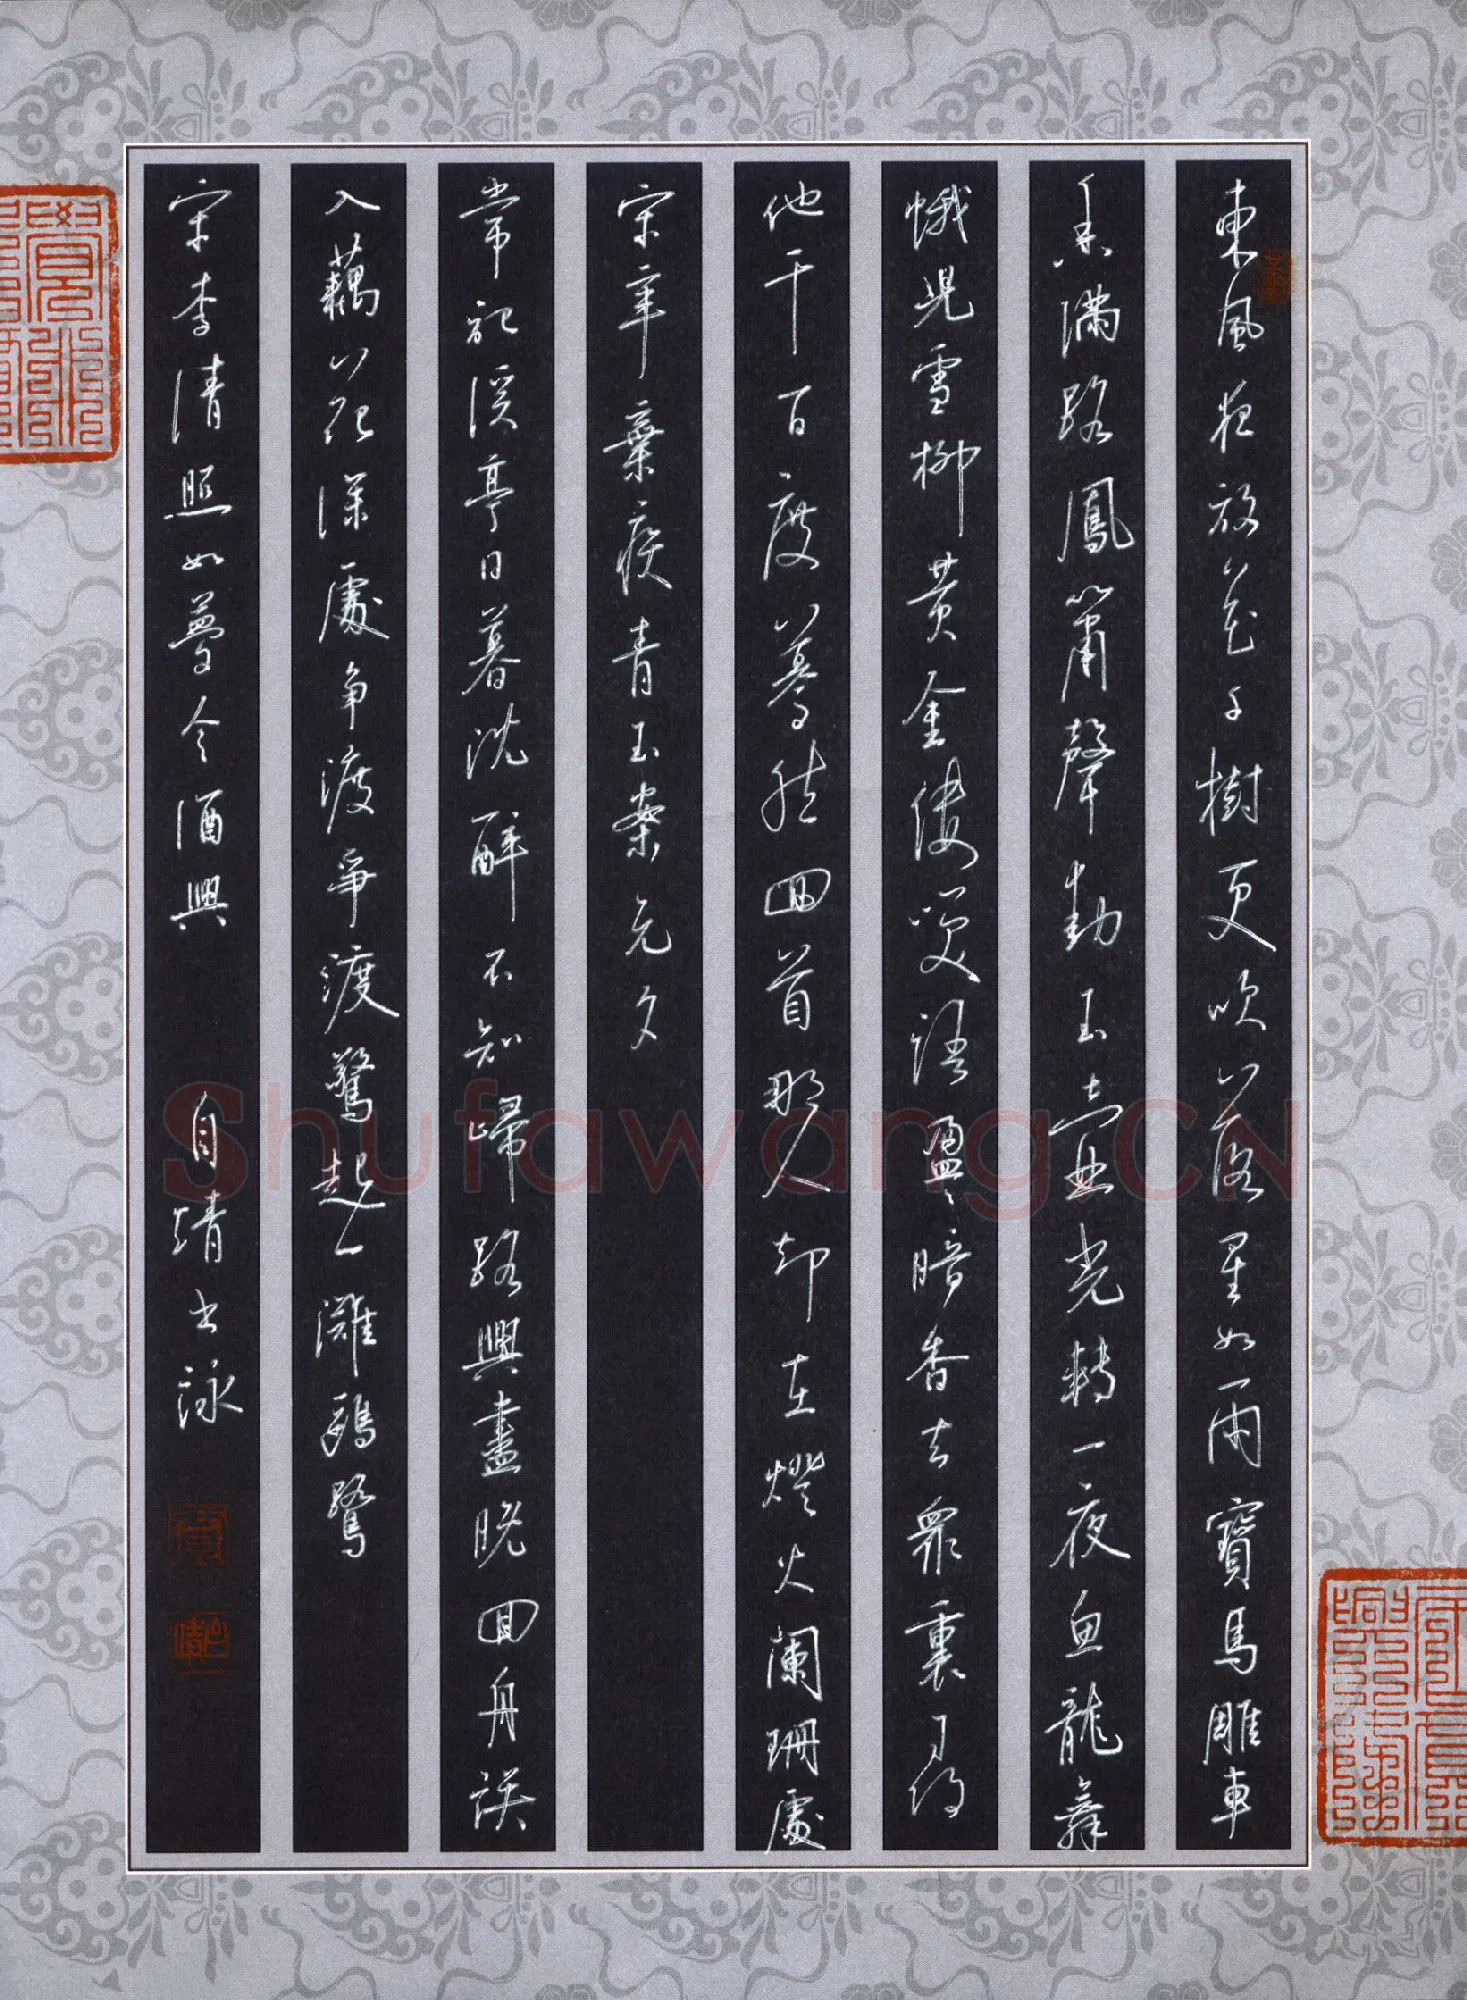 東風夜放花千樹更吹落星如雨寶馬雕車
香滿路鳳簫聲動玉壺光轉一夜魚龍舞
蛾兒雪柳黃金縷笑語盈〻暗香去眾裏尋
他千百度驀然回首那人却在燈火闌珊處
宋辛棄疾青玉案元夕
常記溪亭日暮沈醉不知歸路興盡晚回舟誤
入藕花深處爭渡爭渡驚起一灘鷗鷺
宋李清照如夢令酒興 自靖書詠
Shufawang.CN